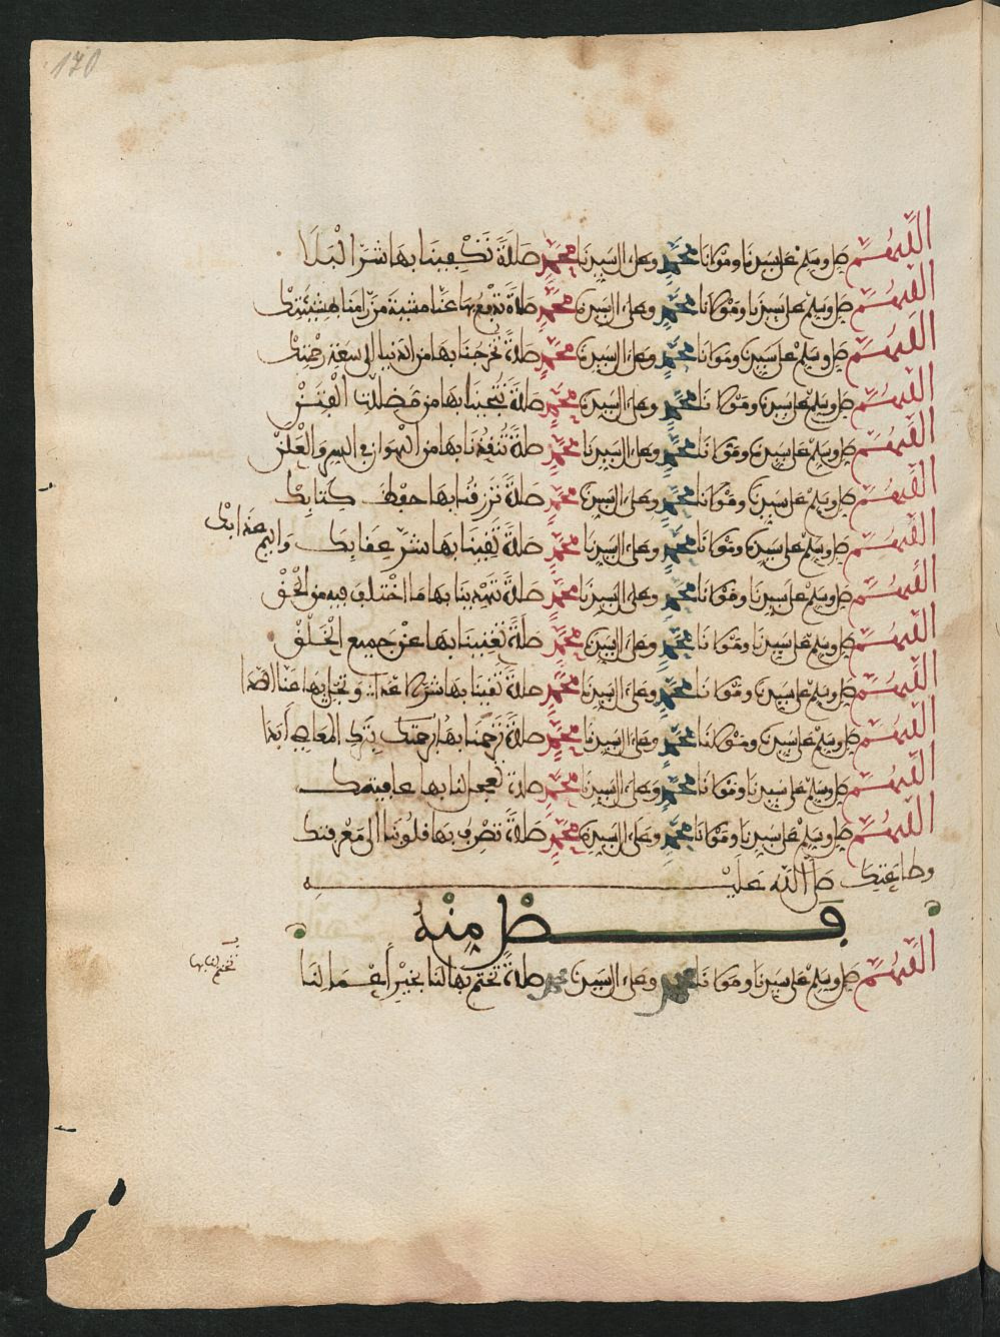 170
اللهم صل وسلم على سيدنا ومولانا محمد وعلى ءال سيدنا محمد صلاة تكفينا بها شر البلا
اللهم صل وسلم على سيدنا ومولانا محمد وعلى ءال سيدنا محمد صلاة
اللهم صل وسلم على سيدنا ومولانا محمد وعلى ءال سيدنا محمد صلاة تخرجنا بها من الى سعة رحمتك
اللهم صل وسلم على سيدنا ومولانا محمد وعلى ءال سيدنا محمد صلاة تنجينا بها من الفتن
اللهم صل وسلم على سيدنا ومولانا محمد وعلى ءال سيدنا محمد صلاة تنقذنا بها من الهوان في السر والعلن
اللهم صل وسلم على سيدنا ومولانا محمد وعلى ءال سيدنا محمد صلاة ترزقنا بها حفظ كتابك
اللهم صل وسلم على سيدنا ومولانا محمد وعلى ءال سيدنا محمد صلاة تقينا بها شر عقابك واليم عذابك
اللهم صل وسلم على سيدنا ومولانا محمد وعلى ءال سيدنا محمد صلاة تهدينا بها ما اختلف فيه من الحق
اللهم صل وسلم على سيدنا ومولانا محمد وعلى ءال سيدنا محمد صلاة تغنينا بها عن جميع الخلق
اللهم صل وسلم على سيدنا ومولانا محمد وعلى ءال سيدنا محمد صلاة تقينا بها شر
اللهم صل وسلم على سيدنا ومولانا محمد وعلى ءال سيدنا محمد صلاة ترحمنا بها رحمتك بترك المعاصي أبدا
اللهم صل وسلم على سيدنا ومولانا محمد وعلى ءال سيدنا محمد صلاة تعجل لنا بها عافيتك
اللهم صل وسلم على سيدنا ومولانا محمد وعلى ءال سيدنا محمد صلاة تصرف بها قلوبنا الى معرفتك
وطاعتك صلى الله عليه
فصل منه
اللهم صل وسلم على سيدنا ومولانا محمد وعلى ءال سيدنا محمد صلاة تختم بها لنا بخير أعمالنا
تختم لنا بها